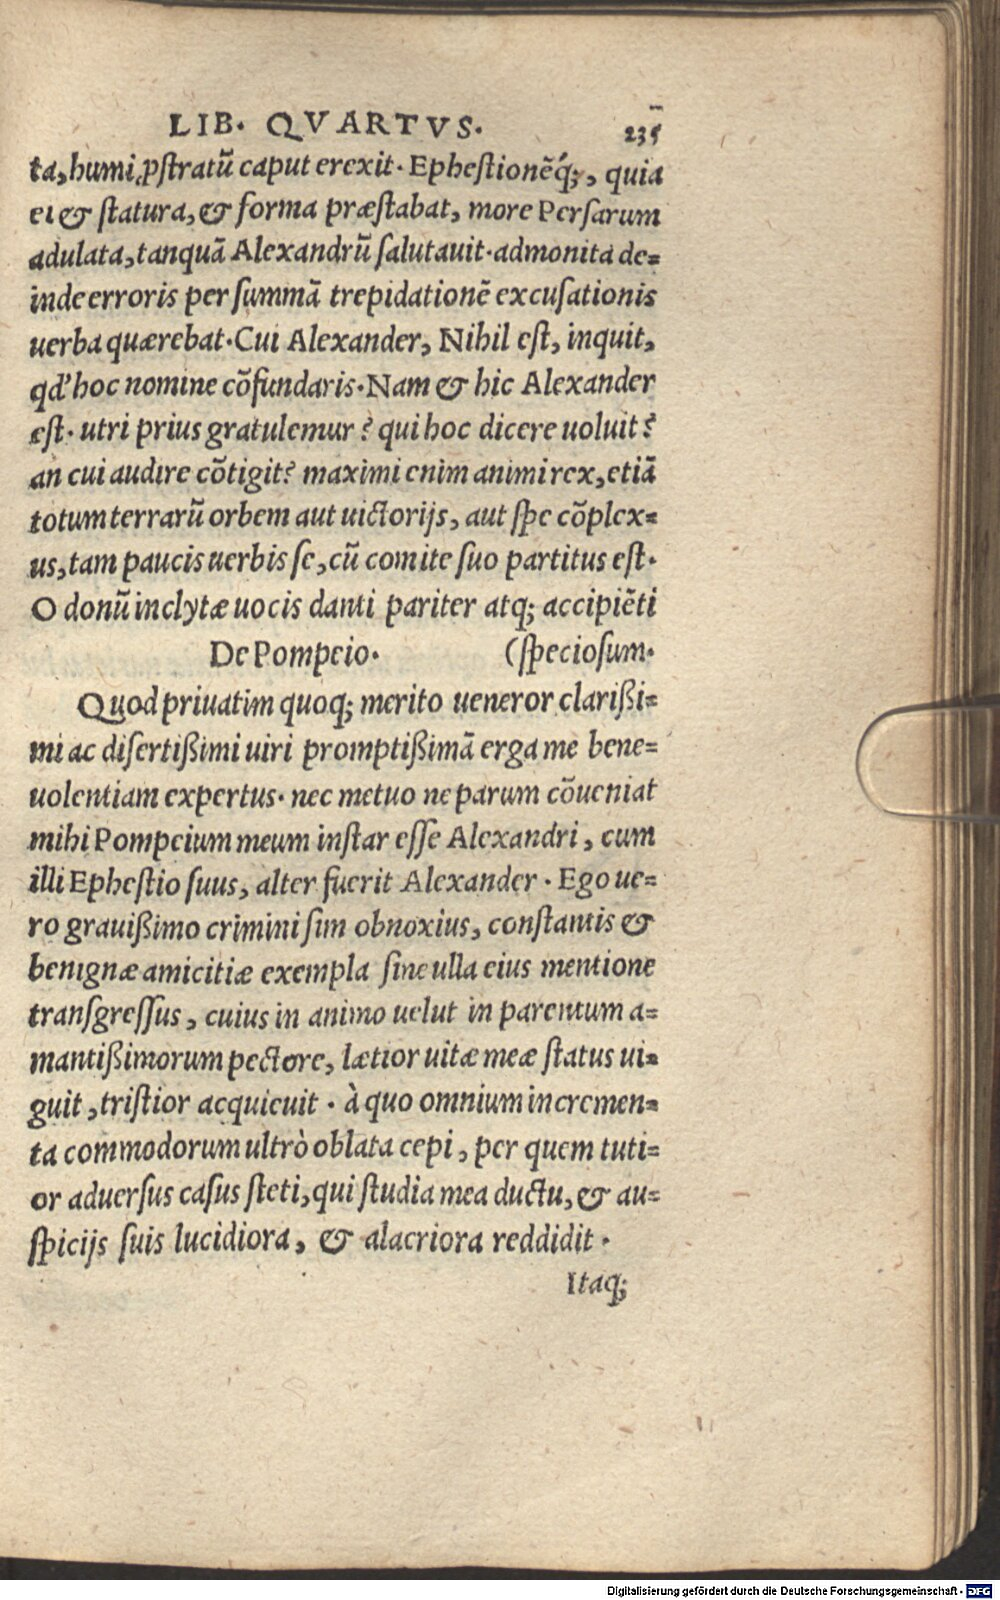 LIB. QVARTVS. 235
ta, humi ꝓstratū caput erexit. Ephestionēq́;, quia
ei & statura, & forma præstabat, more Persarum
adulata, tanquā Alexandrū salutauit. admonita de=
inde erroris per summā trepidationē excusationis
uerba quærebat. Cui Alexander, Nihil est, inquit,
qd' hoc nomine cōfundaris. Nam & hic Alexander
est. utri prius gratulemur? qui hoc dicere uoluit?
an cui audire cōtigit? maximi enim animi rex, etiā
totum terrarū orbem aut uictorijs, aut spe cōplex=
us, tam paucis uerbis se, cū comite suo partitus est.
O donū inclytæ uocis danti pariter atq; accipiēti
De Pompeio. (speciosum.
Quod priuatim quoq; merito ueneror clarißi=
mi ac disertißimi uiri promptißimā erga me bene=
uolentiam expertus. nec metuo ne parum cōueniat
mihi Pompeium meum instar esse Alexandri, cum
illi Ephestio suus, alter fuerit Alexander. Ego ue=
ro grauißimo crimini sim obnoxius, constantis &
benignæ amicitiæ exempla sine ulla eius mentione
transgressus, cuius in animo uelut in parentum a=
mantißimorum pectore, lætior uitæ meæ status ui=
guit, tristior acquieuit. à quo omnium incremen=
ta commodorum ultrò oblata cepi, per quem tuti=
or aduersus casus steti, qui studia mea ductu, & au=
spicijs suis lucidiora, & alacriora reddidit.
Itaq;
Digitalisierung gefördert durch die Deutsche Forschungsgemeinschaft - DFG